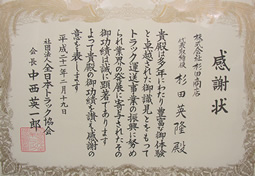 感謝状
株式会社杉田商店
代表取締役 杉田英隆殿
貴殿は多年にわたり豊富な御体験
と卓越された御識見とをもって
トラック運送事業の振興に努め
られ業界の発展に寄与されたその
御功績は誠に顕著であります
よって貴殿の御功績を讃え感謝の
意を表します
平成二十一年二月十九日
社団法人全日本トラック協会
会長 中西英一郎